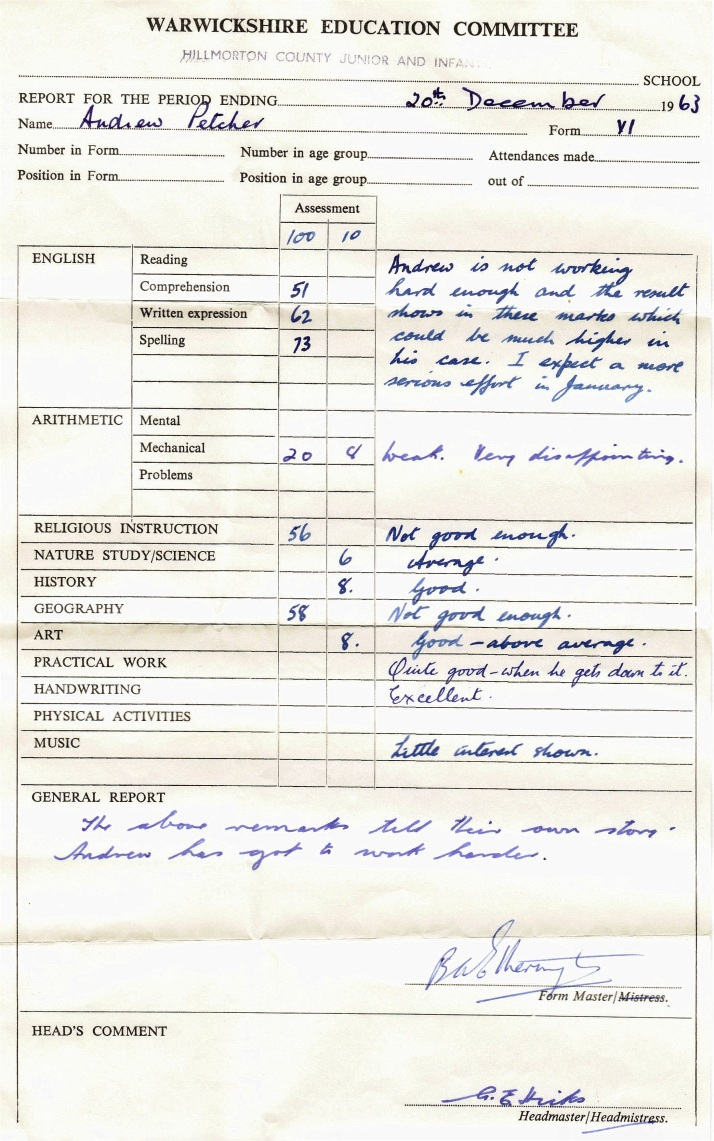 WARWICKSHIRE EDUCATION COMMITTEE
HILLMORTON COUNTY JUNIOR AND INFAN
SCHOOL
REPORT FOR THE PERIOD ENDING 20th December 1963
Name Andrew Petcher Form VI
Number in Form Number in age group Attendances made
Position in Form Position in age group out of
Assessment
100 10
ENGLISH Reading Andrew is not working
Comprehension 51 hard enough and the result
Written expression 62 shows in these marks which
Spelling 73 could be much higher in
his case. I expect a more
serious effort in January.
ARITHMETIC Mental
Mechanical 20 Weak. Very disappointing.
Problems
RELIGIOUS INSTRUCTION 56 Not good enough.
NATURE STUDY/SCIENCE 6 Average.
HISTORY 8. Good.
GEOGRAPHY 58 Not good enough.
ART 8. Good - above average.
PRACTICAL WORK Quite good - when he gets down to it.
HANDWRITING Excellent.
PHYSICAL ACTIVITIES
MUSIC Little interest shown.
GENERAL REPORT
The above remarks tell their own story.
Andrew has got to work harder.
Form Master/Mistress.
HEAD'S COMMENT
G. E. Hicks
Headmaster/Headmistress.